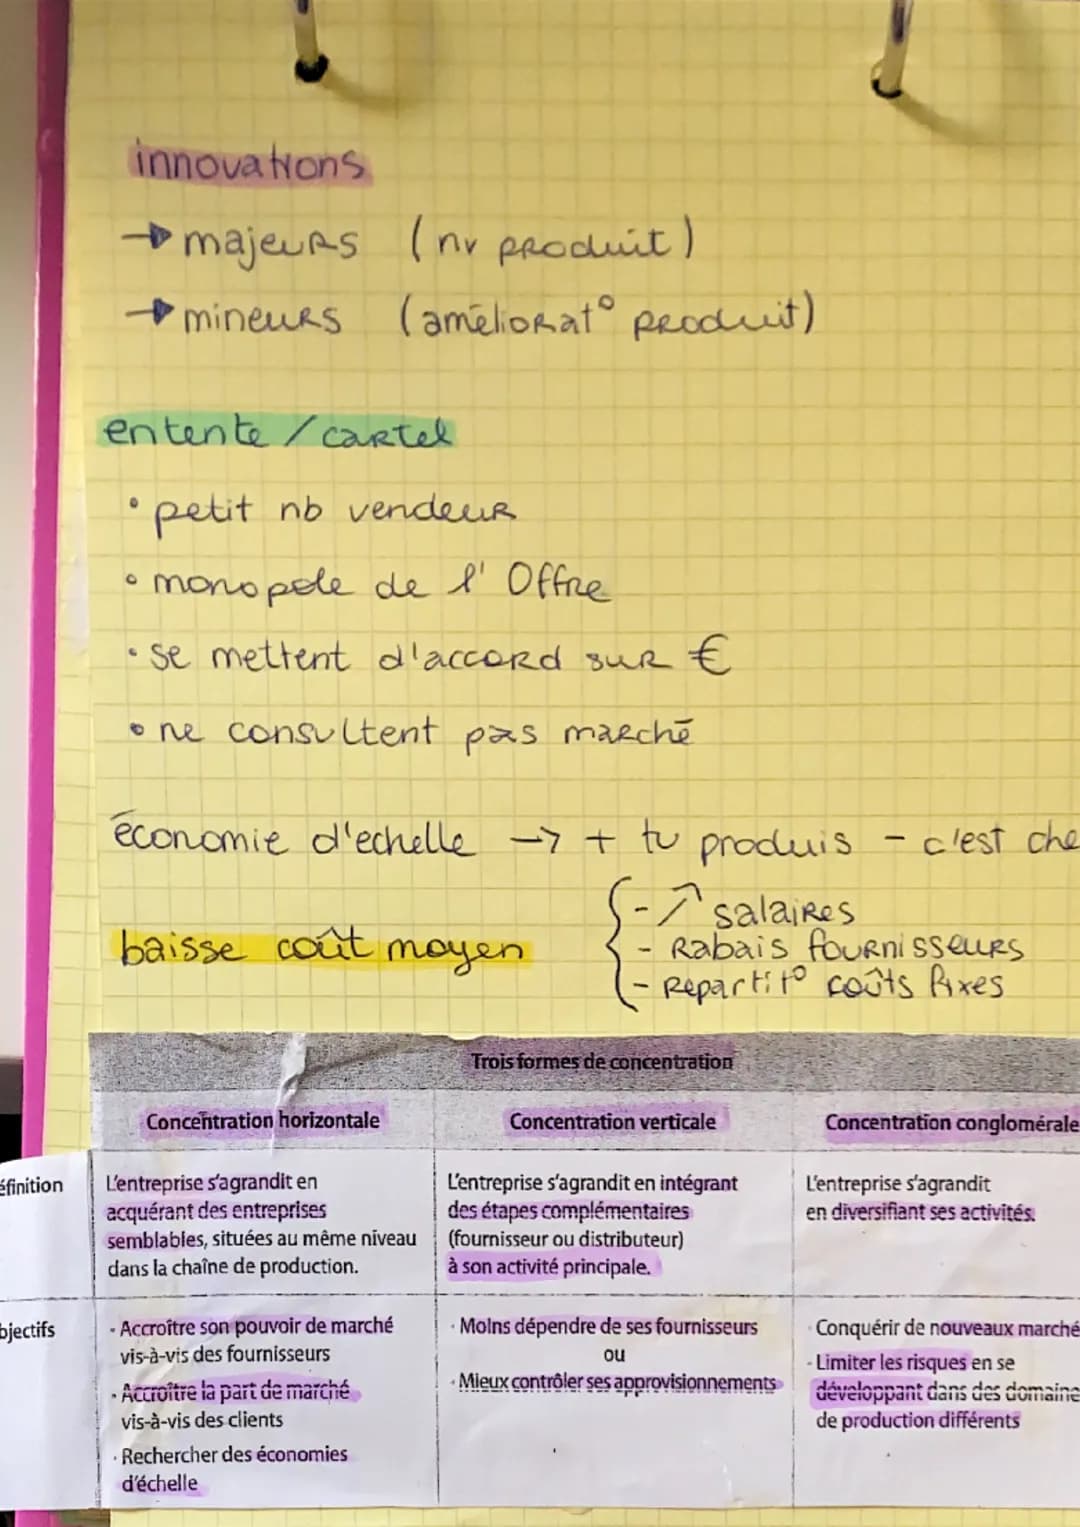 innovations
→ majeurs (nv produit)
→ mineurs (améliorat° produit)
entente / cartel
• petit nb vendeur
• monopole de l'Offre
• se mettent d'accord sur €
• ne consultent pas marché
économie d'echelle → + tu produis - c'est che
baisse coût moyen
- ↗ salaires
- Rabais fournisseurs
- Repartit° coûts fixes
Trois formes de concentration
Concentration horizontale Concentration verticale Concentration conglomérale
éfinition
L'entreprise s'agrandit en
acquérant des entreprises
semblables, situées au même niveau
dans la chaîne de production.
L'entreprise s'agrandit en intégrant
des étapes complémentaires
(fournisseur ou distributeur)
à son activité principale.
L'entreprise s'agrandit
en diversifiant ses activités.
bjectifs
• Accroître son pouvoir de marché
vis-à-vis des fournisseurs
• Accroître la part de marché
vis-à-vis des clients
• Rechercher des économies
d'échelle
• Moins dépendre de ses fournisseurs
ou
• Mieux contrôler ses approvisionnements
• Conquérir de nouveaux marché
• Limiter les risques en se
développant dans des domaine
de production différents